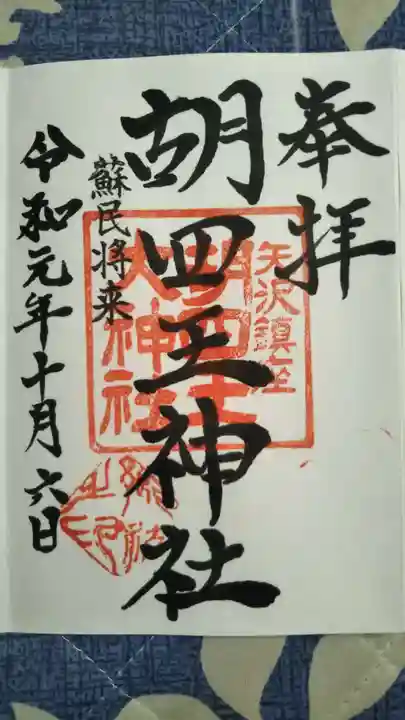 奉拝
矢沢鎮座
胡四王神社
胡四王
大神社
蘇民将来
令和元年十月六日